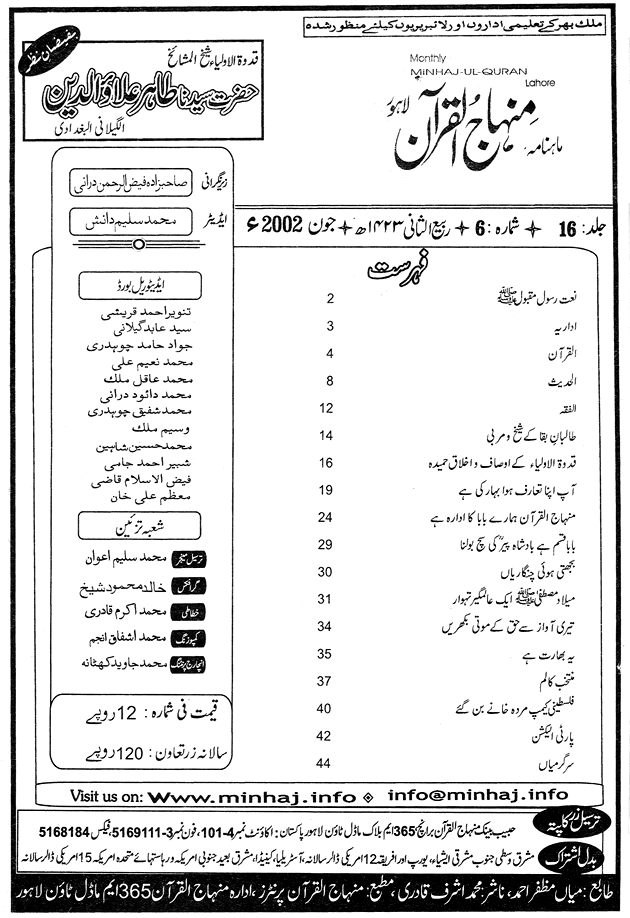 ملک بھر کے تعلیمی اداروں اور لائبریریوں کیلئے منظور شدہ
Monthly
MINHAJ-UL-QURAN
Lahore
ماہنامہ منہاج القرآن لاہور
بفیضان نظر
قدوۃ الاولیاء شیخ المشائخ
حضرت سیدنا طاہر علاؤالدین
الگیلانی البغدادی
زیر نگرانی
صاحبزادہ فیض الرحمن درانی
ایڈیٹر
محمد سلیم دانش
جلد: 16 شمارہ: 6 ربیع الثانی ۱۴۲۳ھ جون 2002ء
فہرست
نعت رسول مقبول ﷺ 2
اداریہ 3
القرآن 4
الحدیث 8
الفقہ 12
طالبان بقا کے شیخ و مربی 14
قدوۃ الاولیاء کے اوصاف و اخلاق حمیدہ 16
آپ اپنا تعارف ہوا بہار کی ہے 19
منہاج القرآن ہمارے بابا کا ادارہ ہے 24
بابا قسم ہے بادشاہ پیرؒ کی سچ بولنا 29
بجھتی ہوئی چنگاریاں 30
میلاد مصطفیٰ ﷺ ایک عالمگیر تہوار 31
تیری آواز سے حق کے موتی بکھریں 34
یہ بھارت ہے 35
منتخب کالم 37
فلسطینی کیمپ مردہ خانے بن گئے 40
پارٹی الیکشن 42
سرگرمیاں 44
ایڈیٹوریل بورڈ
تنویر احمد قریشی
سید عابد گیلانی
جواد حامد چوہدری
محمد نعیم علی
محمد عاقل ملک
محمد دائود درانی
محمد شفیق چوہدری
وسیم ملک
محمد حسین شاہین
شبیر احمد جامی
فیض الاسلام قاضی
معظم علی خان
شعبہ تزئین
ترسیل منیجر محمد سلیم اعوان
گرافکس خالد محمود شیخ
خطاطی محمد اکرم قادری
کمپوزنگ محمد اشفاق انجم
انچارج پرنٹنگ محمد جاوید کھٹانہ
قیمت فی شمارہ : 12 روپے
سالانہ زر تعاون : 120 روپے
Visit us on: Www.minhaj.info info@minhaj.info
ترسیل زر کا پتہ
حبیب بینک منہاج القرآن برانچ 365 ایم بلاک ماڈل ٹاؤن لاہور پاکستان : اکاؤنٹ نمبر 4-101، فون نمبر 3-5169111، فیکس 5168184
بدل اشتراک
مشرق وسطی جنوب مشرقی ایشیاء، یورپ اور افریقہ 12 امریکی ڈالر سالانہ، آسٹریلیا، کینیڈا، مشرق بعید جنوبی امریکہ و ریاستہائے متحدہ امریکہ 15 امریکی ڈالر سالانہ
طابع : میاں مظفر احمد، ناشر : محمد اشرف قادری، مطبع : منہاج القرآن پرنٹرز، ادارہ منہاج القرآن 365 ایم ماڈل ٹاؤن لاہور